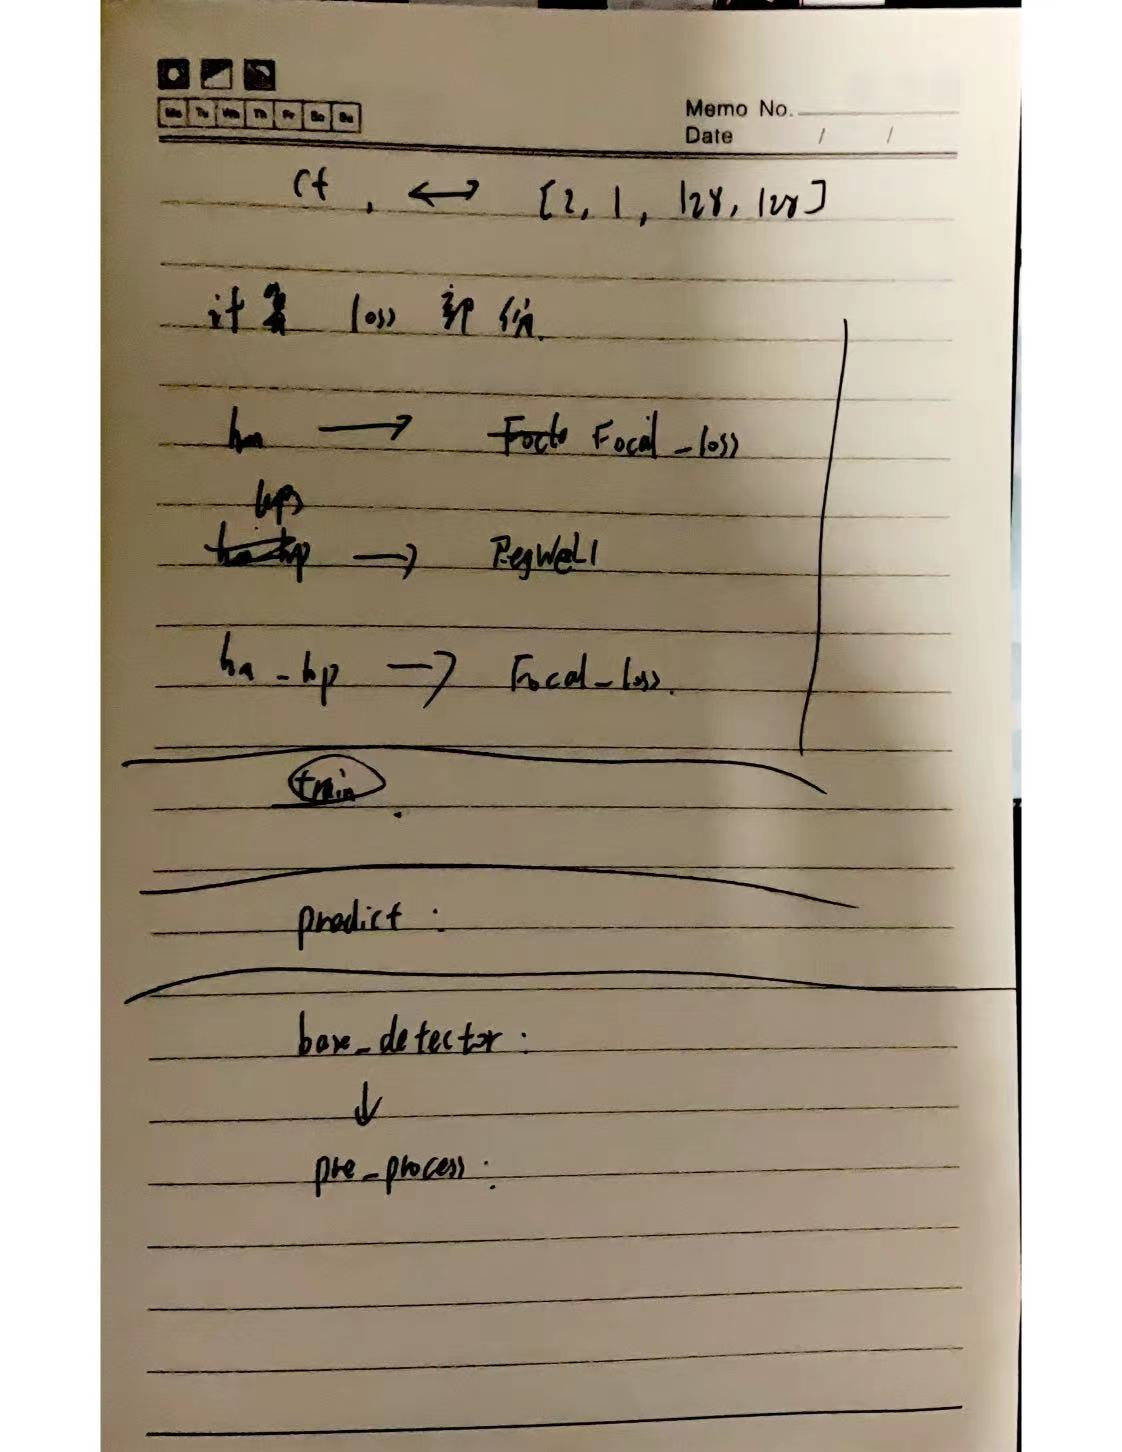 Mo Tu We Th Fr Sa Su
Memo No.
Date / /
ct , ↔ [2, 1, 128, 128]
计算 loss 部份.
hm → Focal_loss
hps
→ RegWeL1
hm_hp → Focal_loss.
train.
predict :
base_detector :
↓
pre_process :